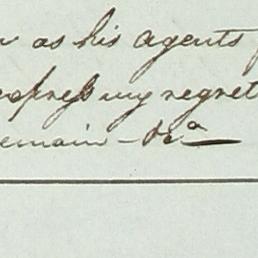 as his agents
express my regret
remain &ca